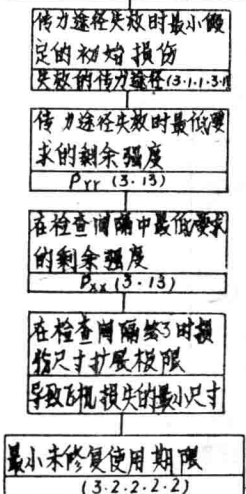 传力途径失效时最小假
定的初始损伤
失效的传力途径(3.1.1.3.1)
传力途径失效时最低要
求的剩余强度
Pyy (3.13)
在检查间隔中最低要求
的剩余强度
Pxx (3.13)
在检查间隔终了时损
伤尺寸扩展极限
导致飞机损失的最小尺寸
最小未修复使用期限
(3.2.2.2.2)